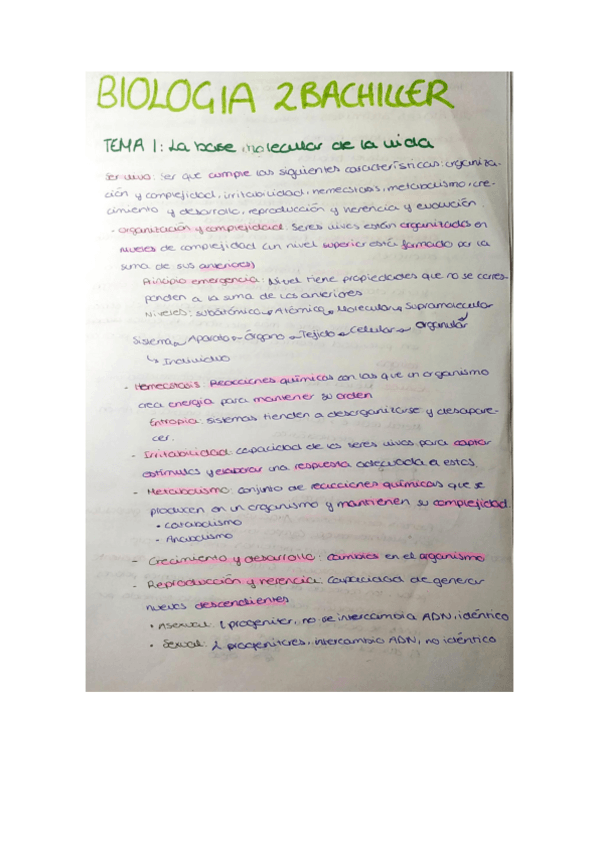 BIOLOGIA 2BACHILLER
TEMA 1: La base molecular de la vida
Ser vivo: ser que cumple las siguientes características: organiza-
ción y complejidad, irritabilidad, homeostasis, metabolismo, cre-
cimiento y desarrollo, reproducción y herencia y evolución.
- Organización y complejidad: Seres vivos están organizados en
niveles de complejidad (un nivel superior está formado por la
suma de sus anteriores)
Principio emergencia: Nivel tiene propiedades que no se corres-
ponden a la suma de los anteriores
Niveles: subatómico → Atómico → Molecular → Supramolecular
Sistema → Aparato → Órgano → Tejido → Celular → Organular
↳ Individuo
- Homeostasis: Reacciones químicas con las que un organismo
crea energía para mantener su orden
Entropía: sistemas tienden a desorganizarse y desapare-
cer.
- Irritabilidad: capacidad de los seres vivos para captar
estímulos y elaborar una respuesta adecuada a estos.
- Metabolismo: conjunto de reacciones químicas que se
producen en un organismo y mantienen su complejidad.
• Catabolismo
- Anabolismo
- Crecimiento y desarrollo: cambios en el organismo
- Reproducción y herencia: Capacidad de generar
nuevos descendientes
• Asexual: 1 progenitor, no se intercambia ADN, idéntico
• Sexual: 2 progenitores, intercambio ADN, no idéntico